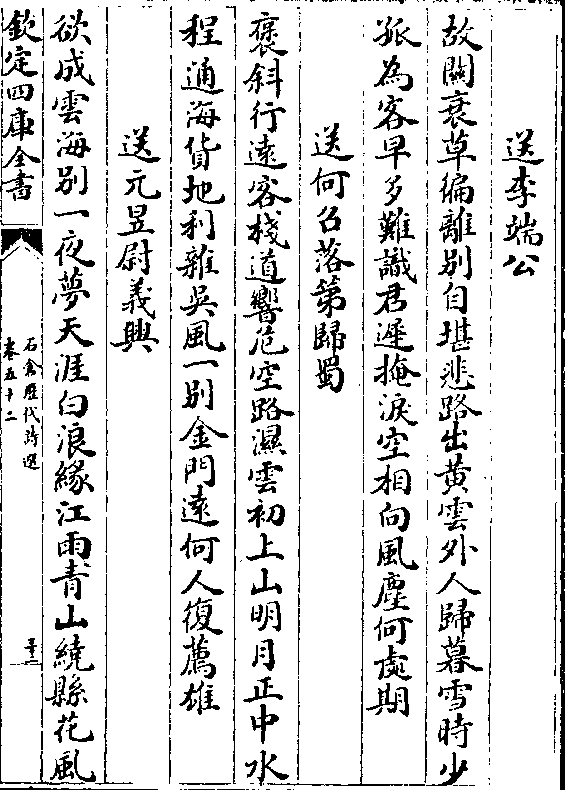 送李端公
故關衰草徧離别自堪悲路出黄雲外人歸暮雪時少
孤為客早多難識君遲掩淚空相向風塵何處期
送何召落第歸蜀
褒斜行遠客棧道響危空路濕雲初上山明月正中水
程通海貨地利雜吳風一别金門遠何人復薦雄
送元昱尉義興
欲成雲海别一夜夢天涯白浪縁江雨青山繞縣花風
欽定四庫全書
石倉歴代詩選
卷五十二